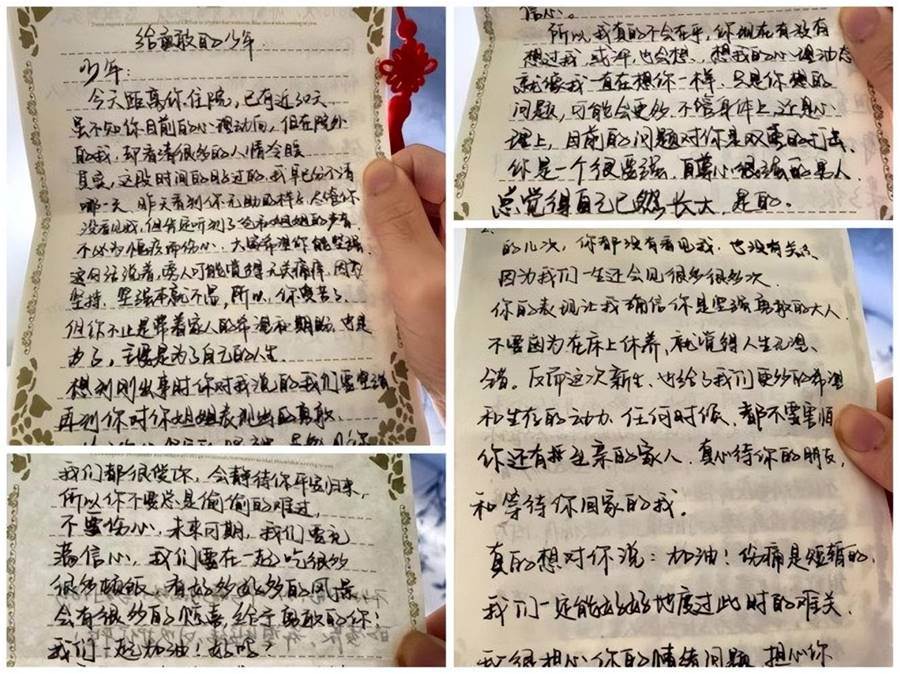 给勇敢的少年
少年:
今天距离你住院,已有近30天
虽不知你目前的心理动向,但在院外
的我,却看清很多的人情冷暖
其实,这段时间的日子过的,我早已分不清
哪一天,昨天看到你无助的样子,尽管你
没看见我,但肯定听到了爸爸姐姐的声音
不必为病疼而伤心,大家希望你能坚强
这句话说着,旁人可能觉得无关痛痒,因为
坚持、坚强本就不易,所以,你受苦了
但你不止是带着家人的希望和期盼,也是
为了,主要是为了自己的人生
想到刚出事时你对我说的我们要坚强
再到你对你姐姐表现出的勇敢
我们都很爱你,会静待你平安归来,
所以你不要总是偷偷的难过,
不要伤心,未来可期,我们要充
满信心,我们要在一起吃很多
很多顿饭,有好多好多的风景
会有很多的惊喜给予勇敢的你!
我们一起加油!好吗?
信心。
所以我真的不会在乎,你现在有没有
想过我,或许也会想,想我的心理动态
就像我一直在想你一样,只是你想的
问题,可能会更多,不管身体上,还是心
理上,目前的问题对你是双重的打击,
你是一个很要强、自尊心很强的男人,
总觉得自己已然长大,是的。
的几次,你都没有看见我,也没有关系
因为我们一生还会见很多很多次
你的表现让我确信你是坚强勇敢的大人,
不要因为在床上休养,就觉得人生无望、
反而这次新生,也给了我们更多的希望
和生存的动力,任何时候,都不要害怕
你还有挚至亲的家人,真心待你的朋友,
和等待你回家的我。
真的想对你说:加油!伤痛是短暂的,
我们一定能够好好地度过此时的难关,
我很担心你的情绪问题,担心你